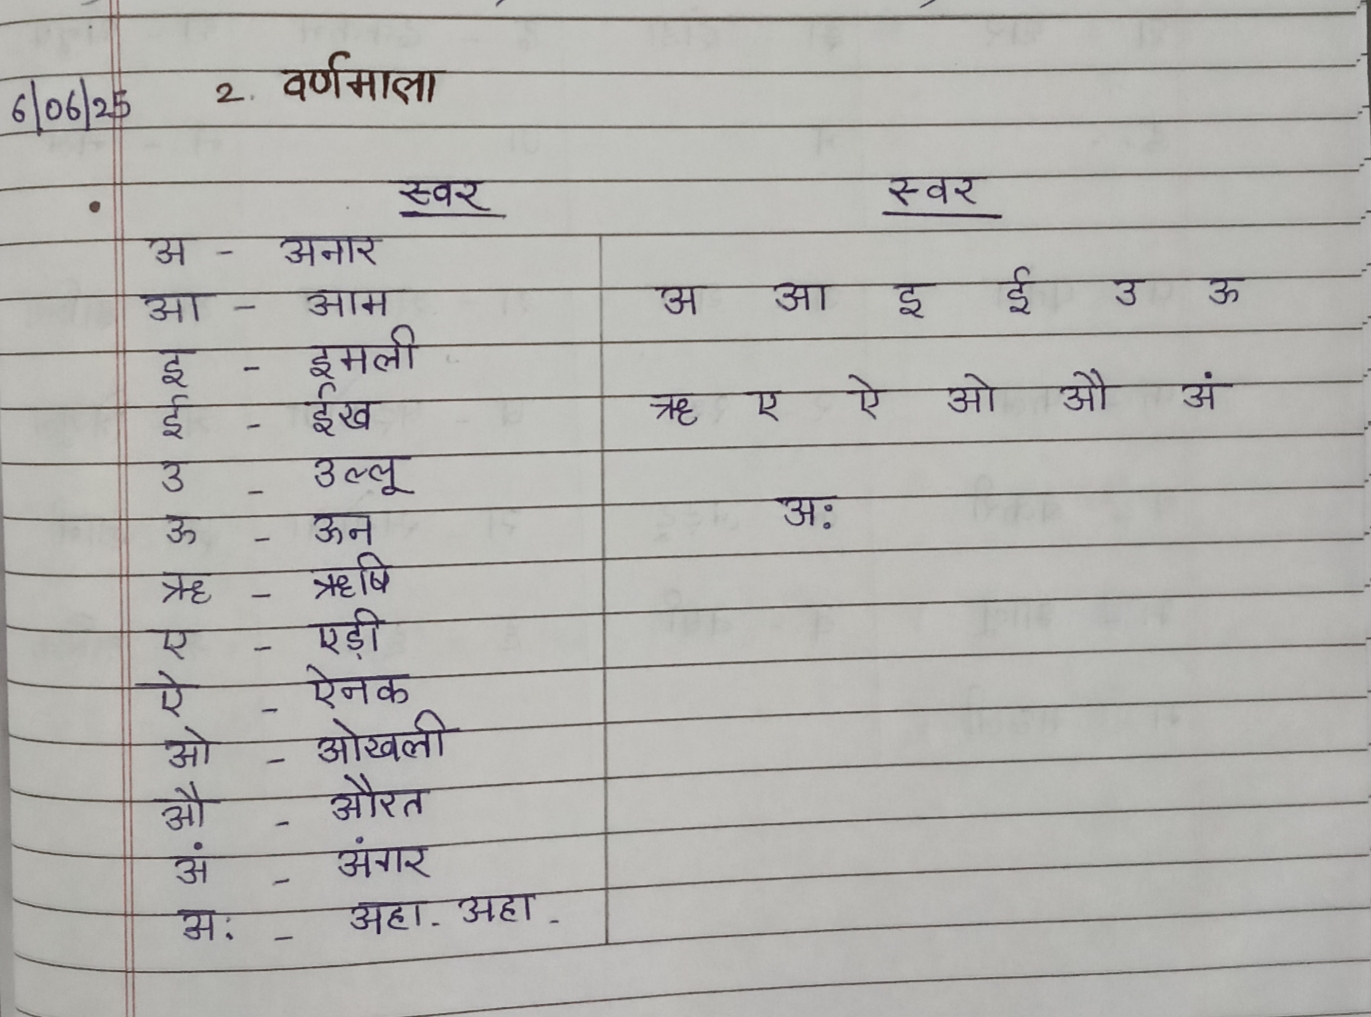 6/06/25 2. वर्णमाला
स्वर
अ - अनार
आ - आम
इ - इमली
ई - ईख
उ - उल्लू
ऊ - ऊन
ऋ - ऋषि
ए - एड़ी
ऐ - ऐनक
ओ - ओखली
औ - औरत
अं - अंगर
अः - अहा. अहा.
स्वर
अ आ इ ई उ ऊ
ऋ ए ऐ ओ औ अं
अः